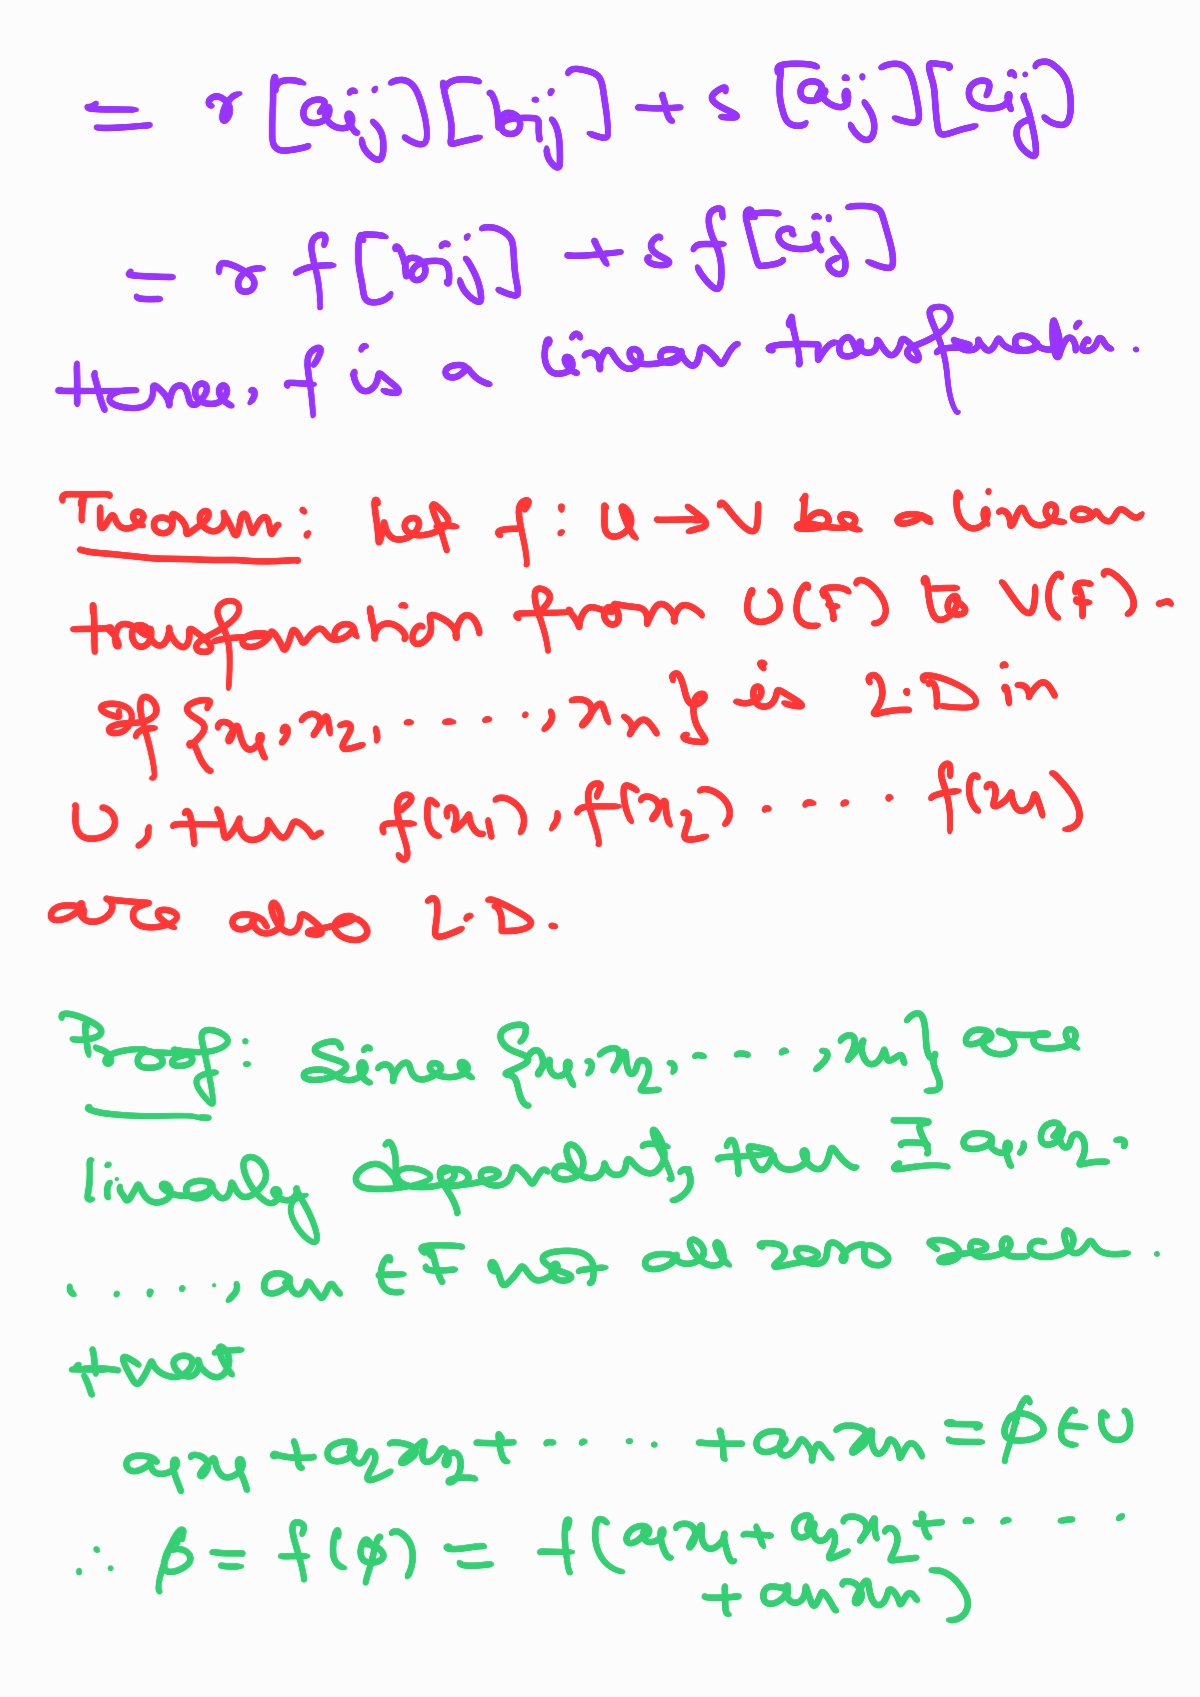 = r [aij][bij] + s [aij][cij]
= r f[bij] + s f[cij]
Hence, f is a linear transformation.
Theorem: Let f : U → V be a linear
transformation from U(F) to V(F).
If {x₁, x₂, ....., xₙ} is L.D in
U, then f(x₁), f(x₂) .... f(xₙ)
are also L.D.
Proof: Since {x₁, x₂, ...., xₙ} are
linearly dependent, then ∃ a₁, a₂.
....., aₙ ∈ F not all zero such.
that
a₁x₁ + a₂x₂ + .... + aₙxₙ = ϕ ∈ U
∴ ϕ = f(ϕ) = f(a₁x₁ + a₂x₂ + ....
+ aₙxₙ)